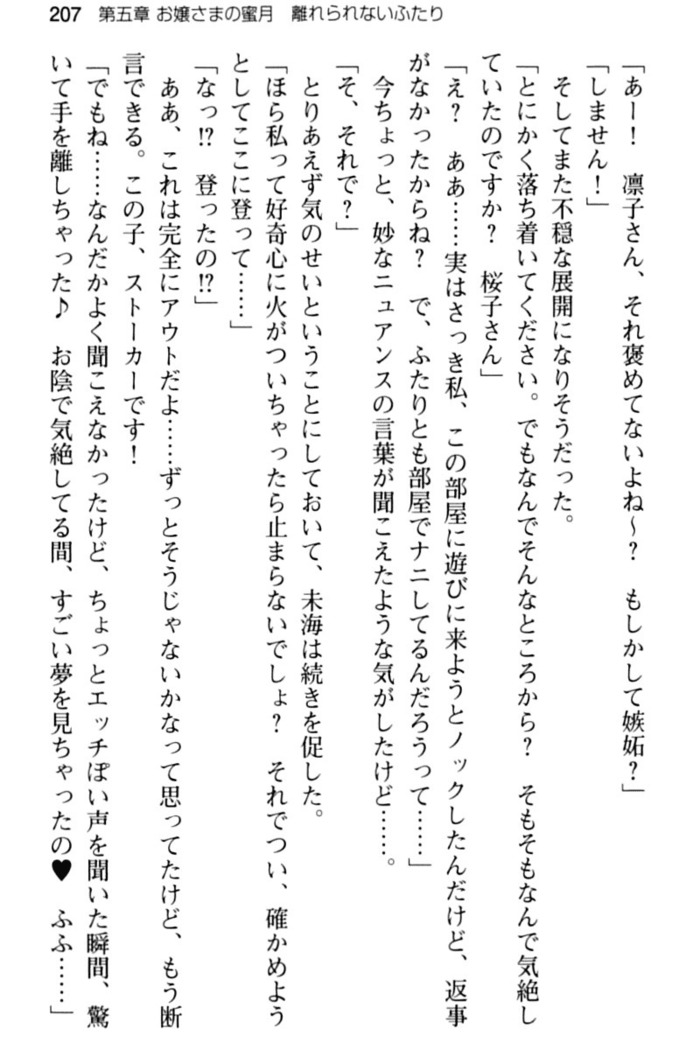 207　第五章 お嬢さまの蜜月　離れられないふたり
「あー！　凛子さん、それ褒めてないよね〜？　もしかして嫉妬？」
「しません！」
そしてまた不穏な展開になりそうだった。
「とにかく落ち着いてください。でもなんでそんなところから？　そもそもなんで気絶し
ていたのですか？　桜子さん」
「え？　ああ……実はさっき私、この部屋に遊びに来ようとノックしたんだけど、返事
がなかったからね？　で、ふたりとも部屋でナニしてるんだろうって……」
今ちょっと、妙なニュアンスの言葉が聞こえたような気がしたけど……。
「そ、それで？」
とりあえず気のせいということにしておいて、未海は続きを促した。
「ほら私って好奇心に火がついちゃったら止まらないでしょ？　それでつい、確かめよう
としてここに登って……」
「なっ!?　登ったの!?」
ああ、これは完全にアウトだよ……ずっとそうじゃないかなって思ってたけど、もう断
言できる。この子、ストーカーです！
「でもね……なんだかよく聞こえなかったけど、ちょっとエッチぽい声を聞いた瞬間、驚
いて手を離しちゃった♪　お陰で気絶してる間、すごい夢を見ちゃったの♥　ふふ……」